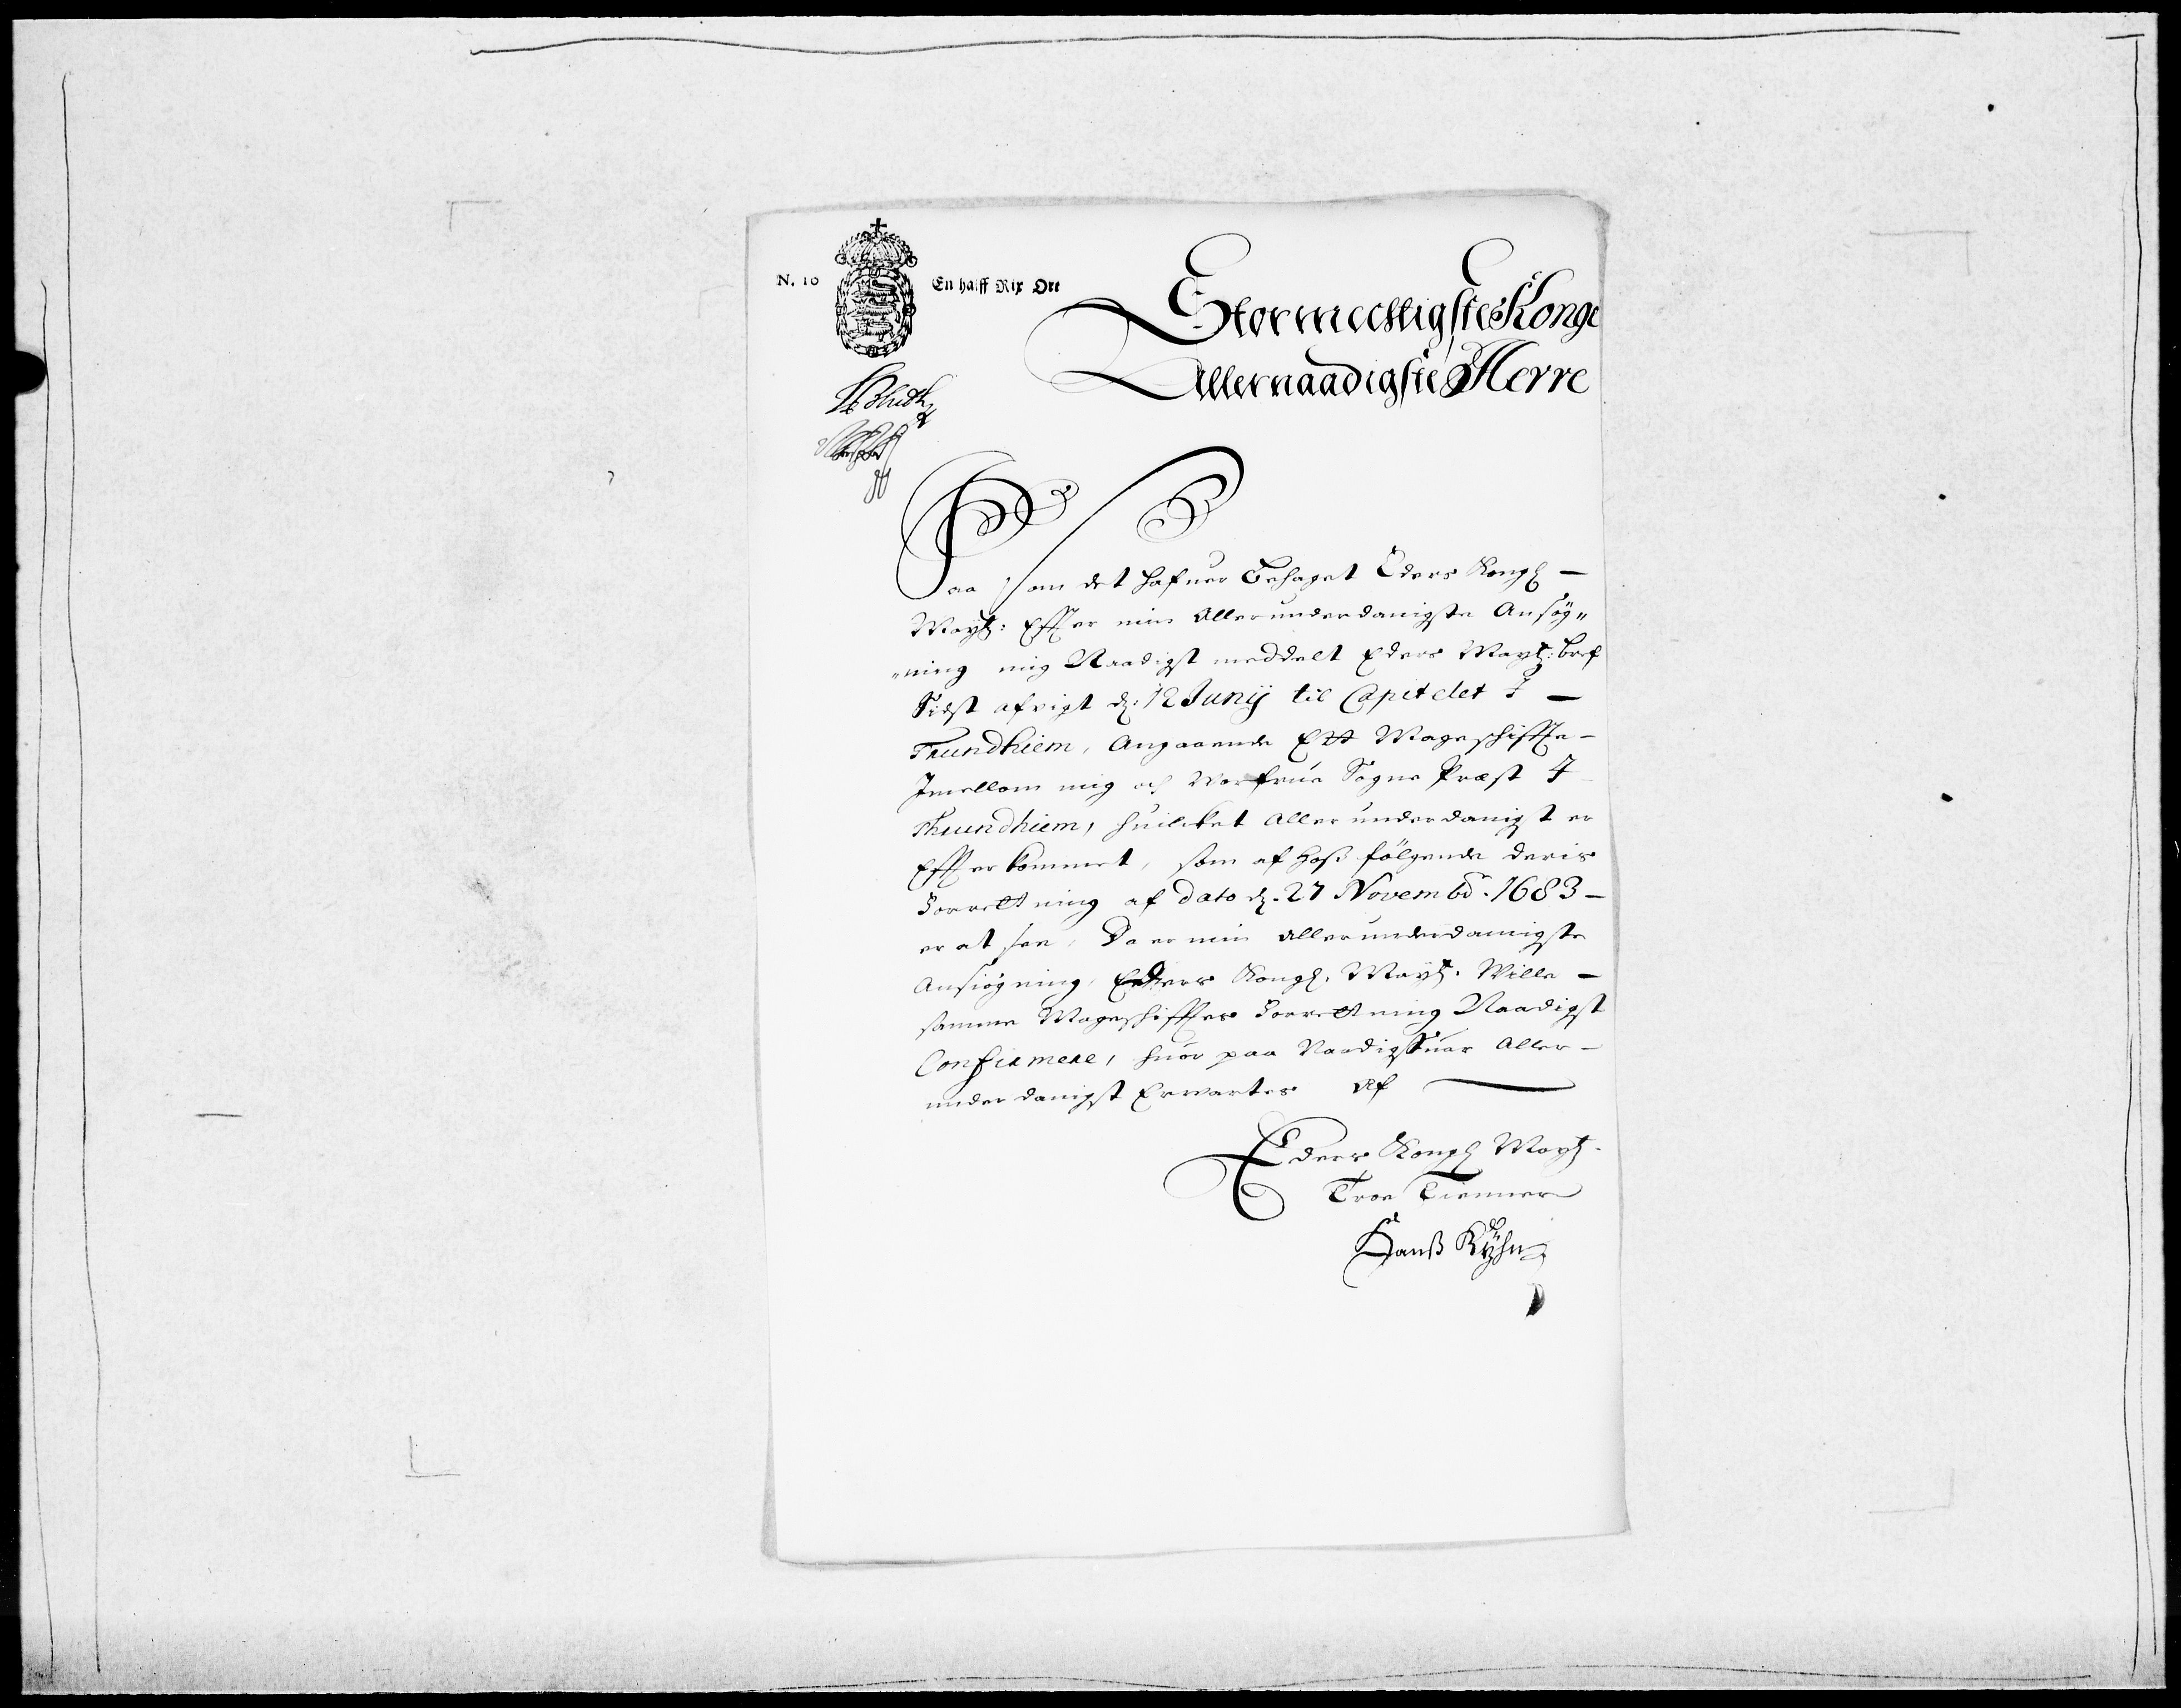 N. 10
En halff Rix Ort
Stormectigste Konge
Allernaadigste Herre
Saa som det hafuer Behaget Eders Kongl
Mayt: Effter min Allerunderdanigste Ansøg„
„ning mig Naadigst meddelt Eders Mayt: bref
Sidst afvigt d: 12 Junij til Capitelet I
Trundhiem, Angaaende Ett Mageschiffte
Imellom mig och Worfrue Sogne Præst I
Thrundhiem, huilcket Allerunderdanigst er
Effterkommet, som af hoß følgende deris
Forrettning af Dato d. 27 Novembr. 1683
er at see, Da er min Allerunderdanigste
Ansiøgning, Eders Kongl. Mayt. Wille
samme Mageschifftes Forrettning Naadigst
Confirmere, huor paa Naadigst suar Aller
underdanigst Erwartes Af
Eders Kongl Mayt.
Troe Tienner
Hanß Kÿhn